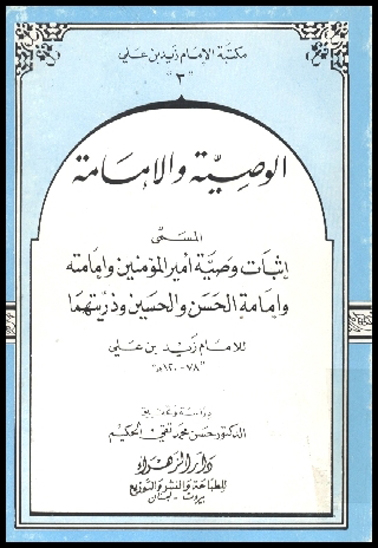 مكتبة الإمام زيد بن علي
"٣"
الوصية والإمامة
المسمى
إثبات وصية أمير المؤمنين وإمامته
وإمامة الحسن والحسين وذريتهما
للإمام زيد بن علي
"٧٨-١٢٠هـ"
دراسة وتحقيق
الدكتور حسن محمد تقي الحكيم
دار الزهراء
للطباعة والنشر والتوزيع
بيروت - لبنان